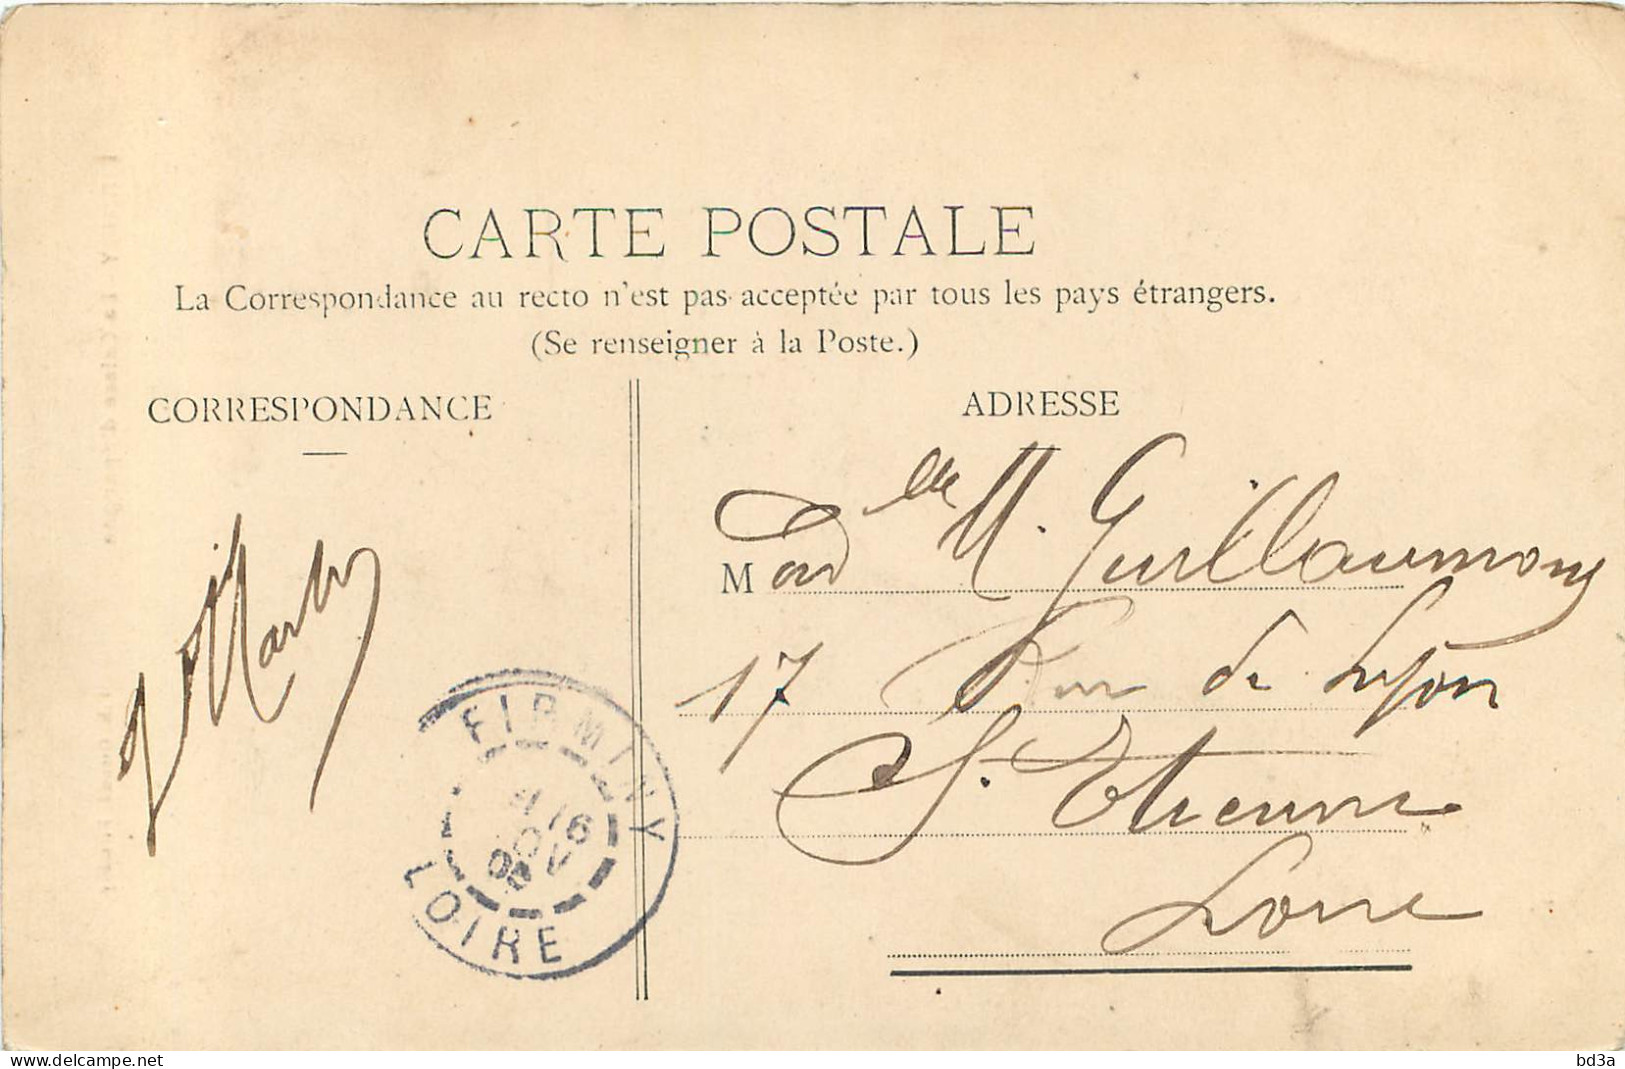 CARTE POSTALE
La Correspondance au recto n'est pas acceptée par tous les pays étrangers.
(Se renseigner à la Poste.)
CORRESPONDANCE
ADRESSE
Mad elle M. Guillaumond
17 Rue de Lyon
St. Etienne
Loire
FIRMINY
LOIRE
delcampe.net
bd3a